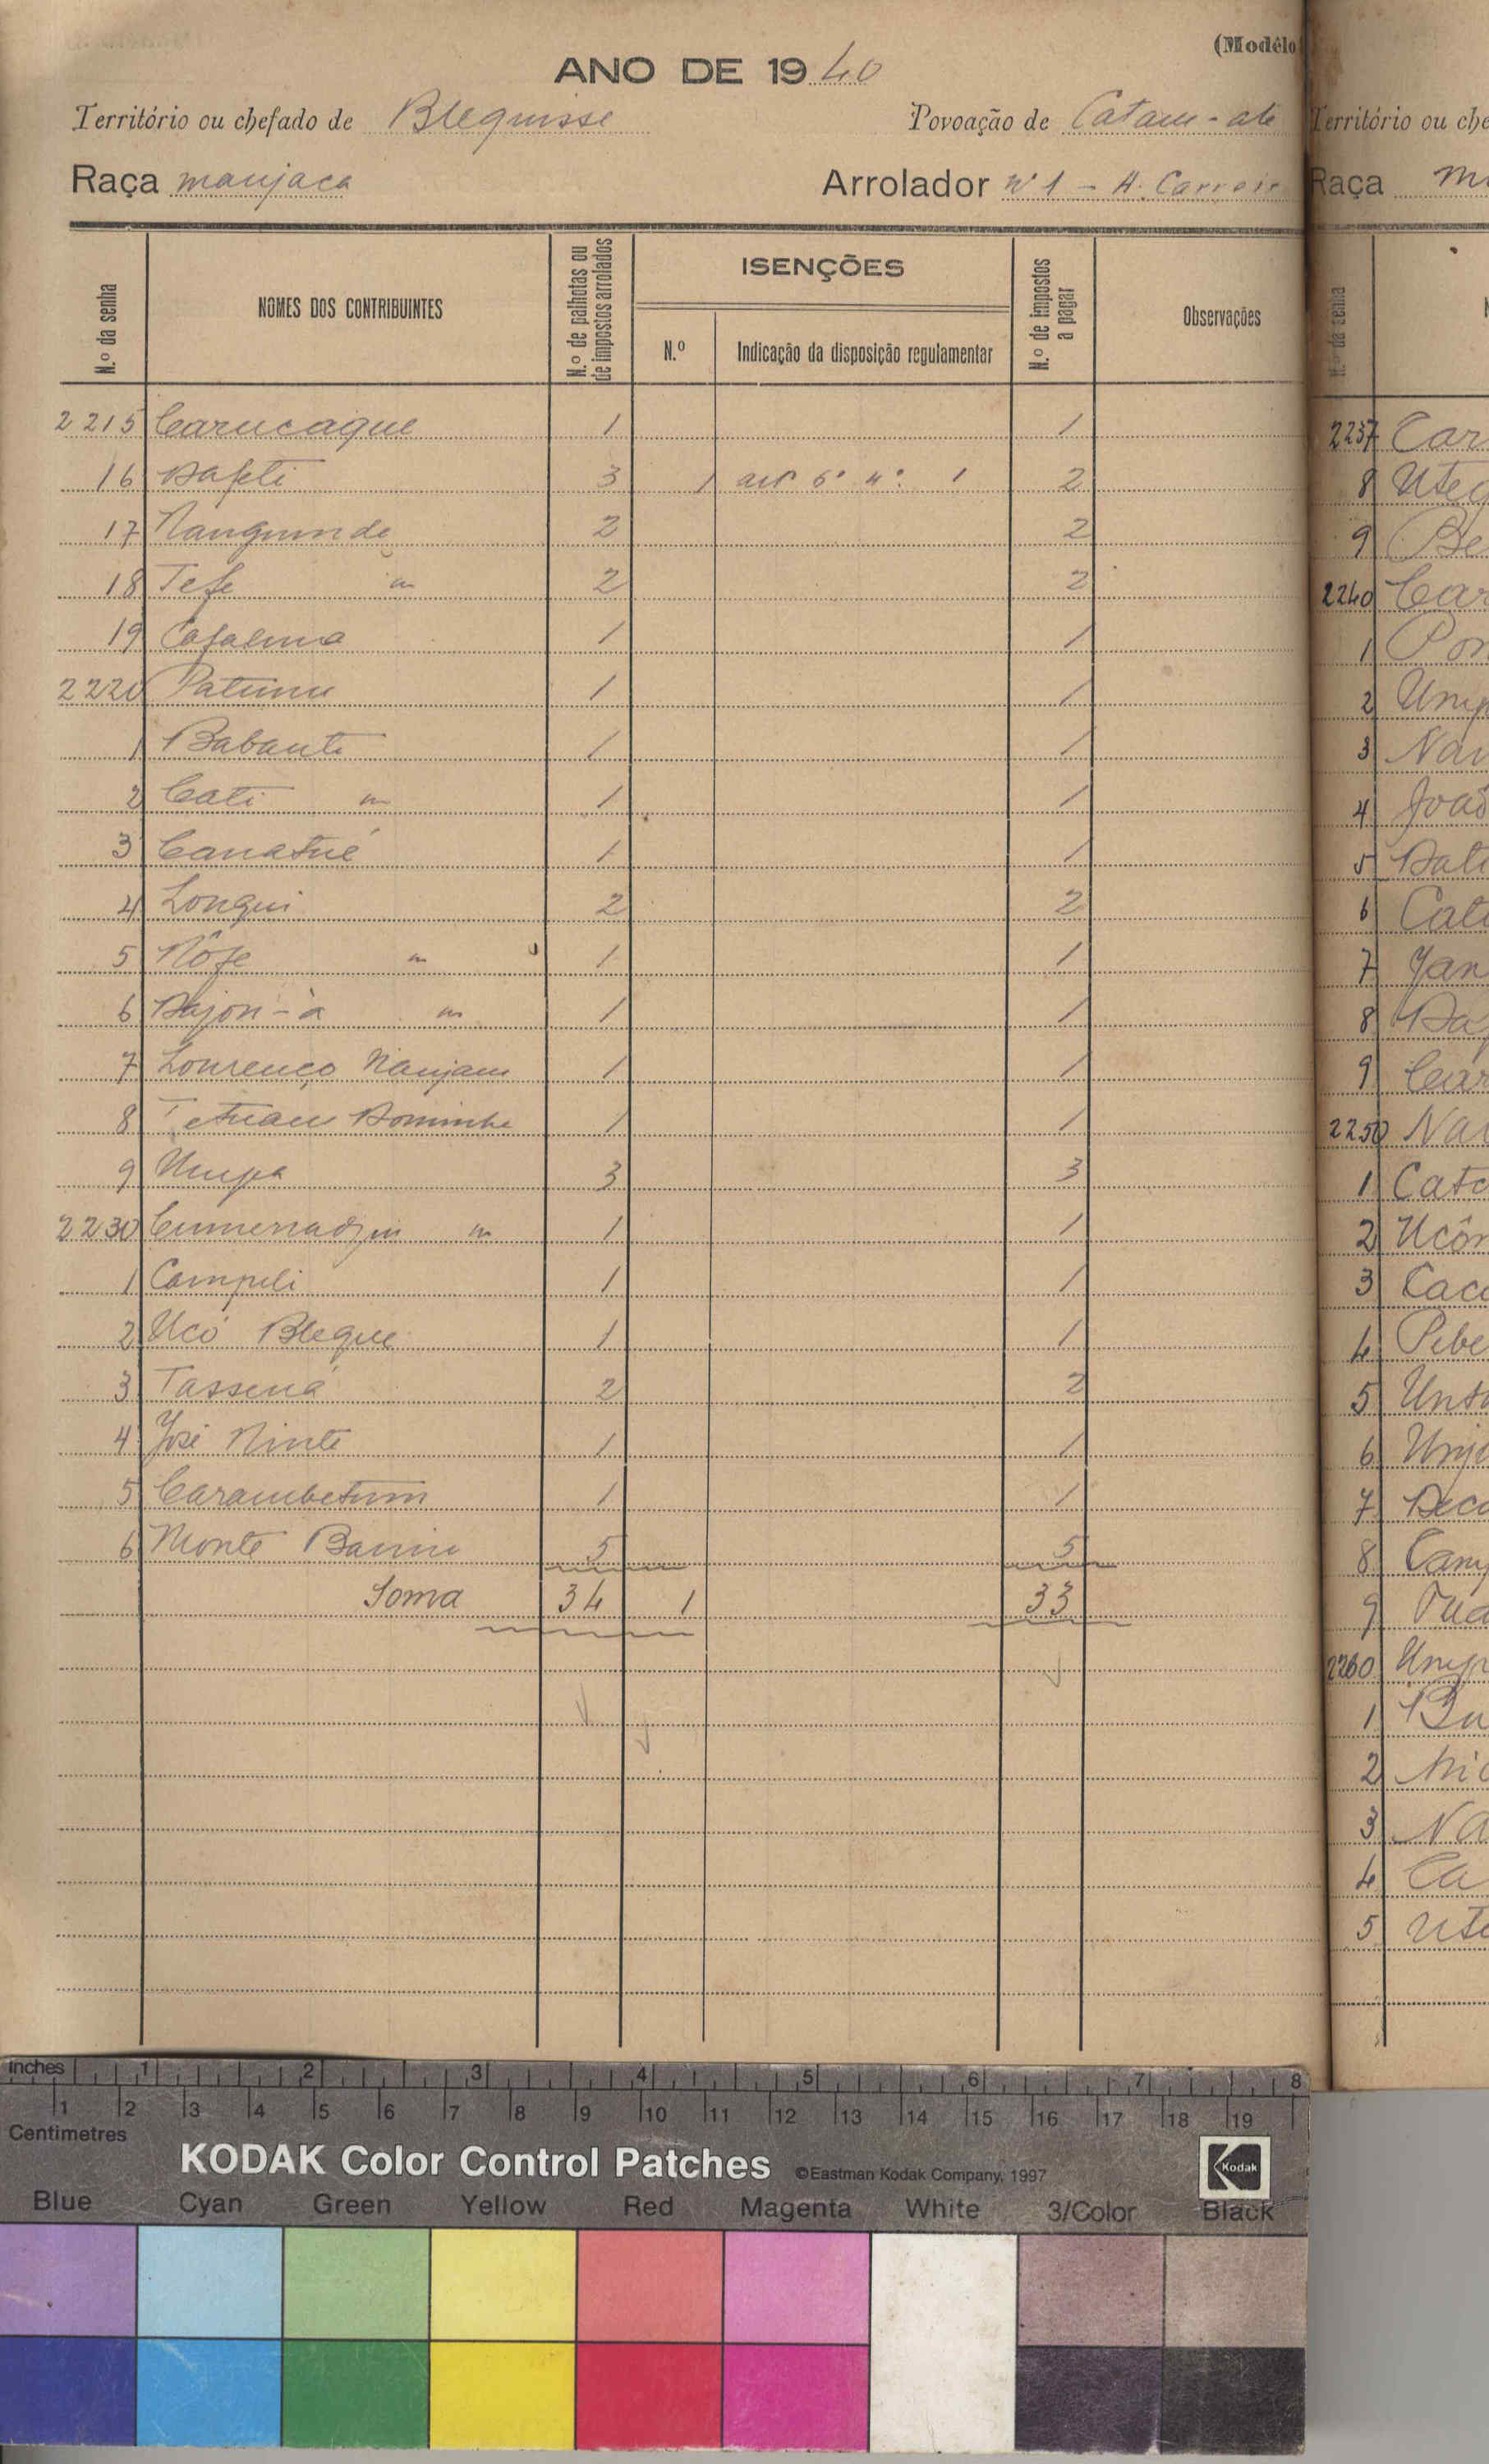 (Modêlo
ANO DE 1940
Território ou chefado de Blequisse Povoação de Catam-ate
Raça manjaca Arrolador nº 1 - A. Carreir
N.º da senha NOMES DOS CONTRIBUINTES N.º de palhotas ou de impostos arrolados ISENÇÕES N.º Indicação da disposição regulamentar N.º de impostos a pagar Observações
2215 Carucaque 1 1
16 Dafeti 3 1 artº 6º nº 1 2
17 Nanguinde 2 2
18 Tefe m 2 2
19 Cafalma 1 1
2220 1 1
1 Babanti 1 1
2 Cati m 1 1
3 Canatué 1 1
4 Longui 2 2
5 Nôfe m 1 1
6 Dajon-à m 1 1
7 Lourenço Nanjam 1 1
8 Dominho 1 1
9 Umpa 3 3
2230 m 1 1
1 Campili 1 1
2 Ucó Bleque 1 1
3 Tassená 2 2
4 José Ninte 1 1
5 Carambetum 1 1
6 Monte 5 5
Soma 34 1 33
Território ou che
Raça m
N.º da senha
2237 Car
8 Uteq
9 Be
2240 Car
1 Pon
2 Ump
3 Nav
4 Joaõ
5 Dati
6 Cati
7 Jan
8 Da
9 Car
2250 Na
1 Catc
2 Ucôn
3 Caca
4 Pebe
5 Unt
6 Unj
7 Deca
8 Cam
9
2260 Ump
1 Bu
2 Nic
3 Na
4 Ca
5 Ute
inches 1 2 3 4 5 6 7 8
1 2 3 4 5 6 7 8 9 10 11 12 13 14 15 16 17 18 19
Centimetres
KODAK Color Control Patches ©Eastman Kodak Company, 1997 Kodak
Blue Cyan Green Yellow Red Magenta White 3/Color Black